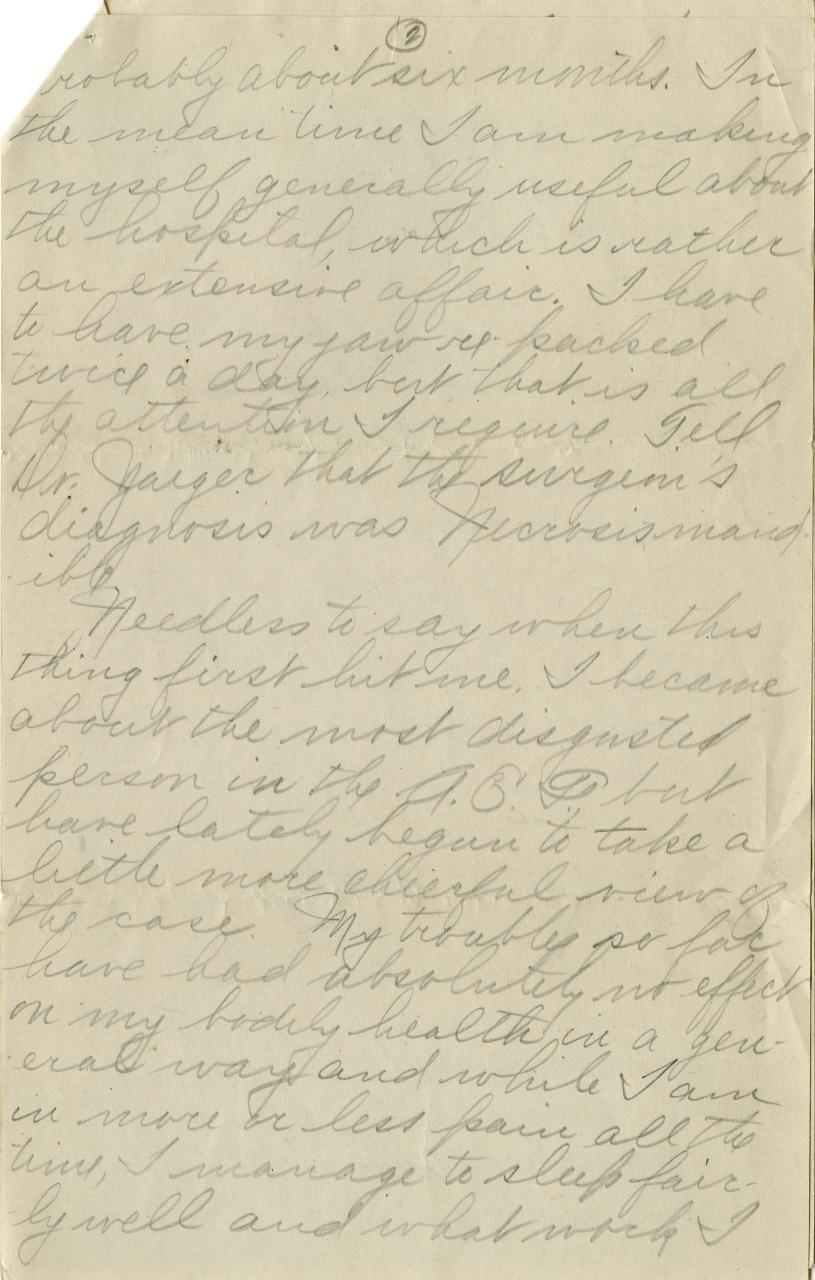 2
robably about six months. In
the mean time I am making
myself generally useful about
the hospital, which is rather
an extensive affair. I have
to have my jaw re-packed
twice a day, but that is all
the attention I require. Tell
Dr. Jaeger that the surgeon's
diagnosis was Necrosis mand-
ible.
Needless to say when this
thing first hit me, I became
about the most disgusted
person in the A.E.F. but
have lately begun to take a
little more cheerful view of
the case. My troubles so far
have had absolutely no effect
on my bodily health in a gen-
eral way and while I am
in more or less pain all the
time, I manage to sleep fair-
ly well and what work I